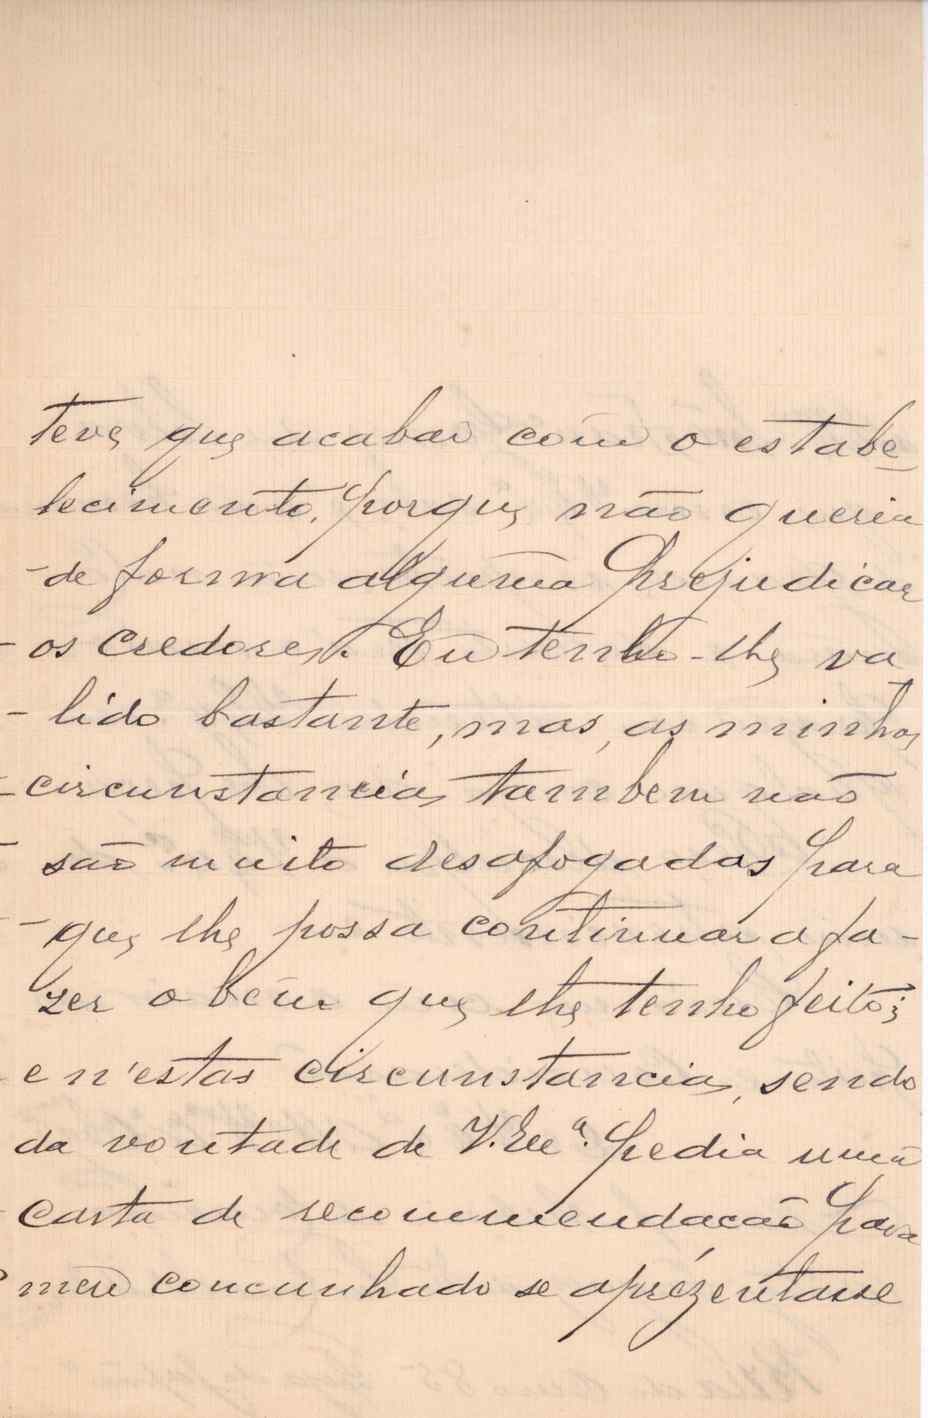 teve que acabar com o estabe-
lecimento, porque não queria
de forma alguma prejudicar
os credores. Eu tenho-lhe va-
lido bastante, mas, as minhas
circunstancias tambem não
são muito desafogadas para
que lhe possa continuar a fa-
zer o bem que lhe tenho feito;
e n'estas circunstancias, sendo
da vontade de V. Exª. pedia uma
carta de recommendação para
meu concunhado se aprézentasse